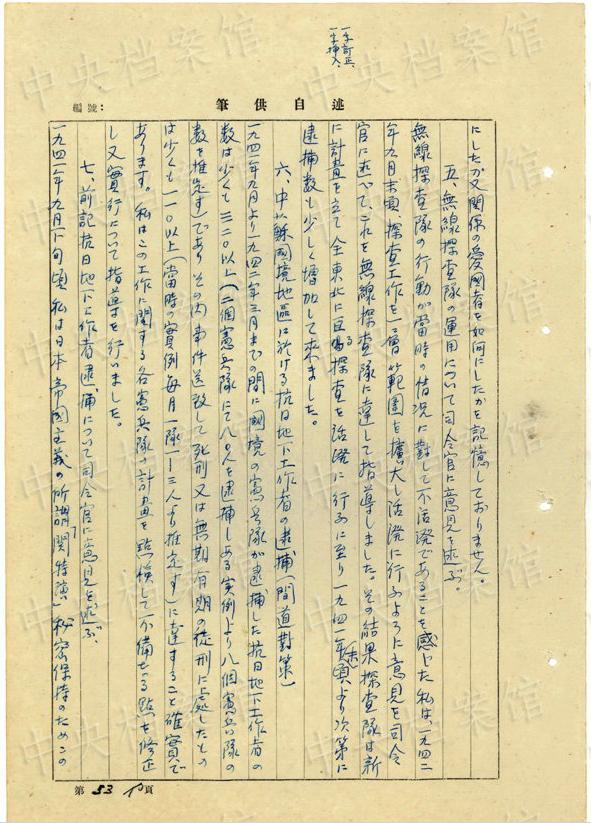 一字訂正、
一字挿入、
編號:
筆供自述
にしたか又関係の愛國者を如何にしたかを記憶しておりません。
五、無線探査隊の運用について司令官に意見を述ぶ。
無線探査隊の行動が當時の情况に對して不活溌であることを感じた私は、一九四二
年九月末頃、探査工作を一層範囲を擴大し活溌に行ふように意見を司令
官に述べて、これを無線探査隊に達して指導しました。その結果探査隊は新
に計畫を立て全東北に亘る探査を活溌に行ふに至り一九四一年末頃より次第に
逮捕数も少しく増加して来ました。
六、中蘇國境地區に於ける抗日地下工作者の逮捕(間道對策)
一九四一年九月より一九四二年三月までの間に國境の憲兵隊が逮捕した抗日地下工作者の
数は少くも三二〇以上(二個憲兵隊にて八〇人を逮捕しある実例より八個憲兵隊の
数を推定す)であり その内事件送致して死刑又は無期有期の徒刑に處したもの
は少くも一一〇以上(當時の實例毎月一隊一—三人より推定す)に達すること確實で
あります。私はこの工作に関する各憲兵隊の計畫を點検して不備なる點を修正
し又實行について指導を行いました。
七、前記抗日地下工作者逮捕について司令官に意見を述ぶ、
一九四一年九月下旬頃 私は日本帝國主義の所謂「関特演」秘密保持のためこの
第53頁
中央档案馆